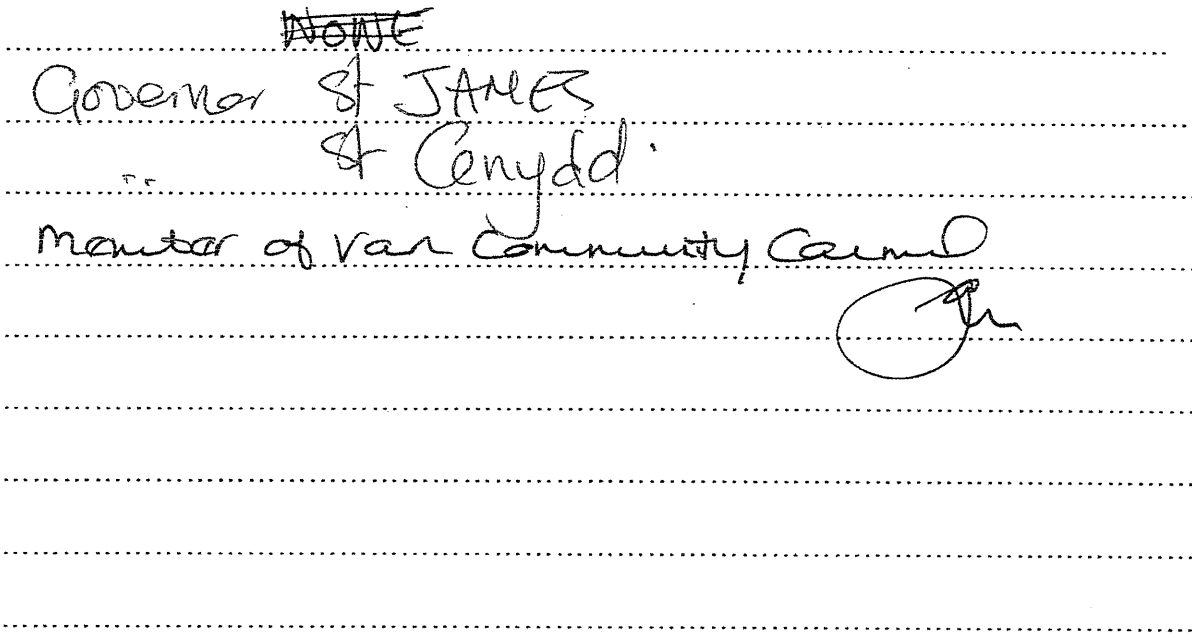 NONE
Governor St JAMES
" St Cenydd.
Member of Van Community Council